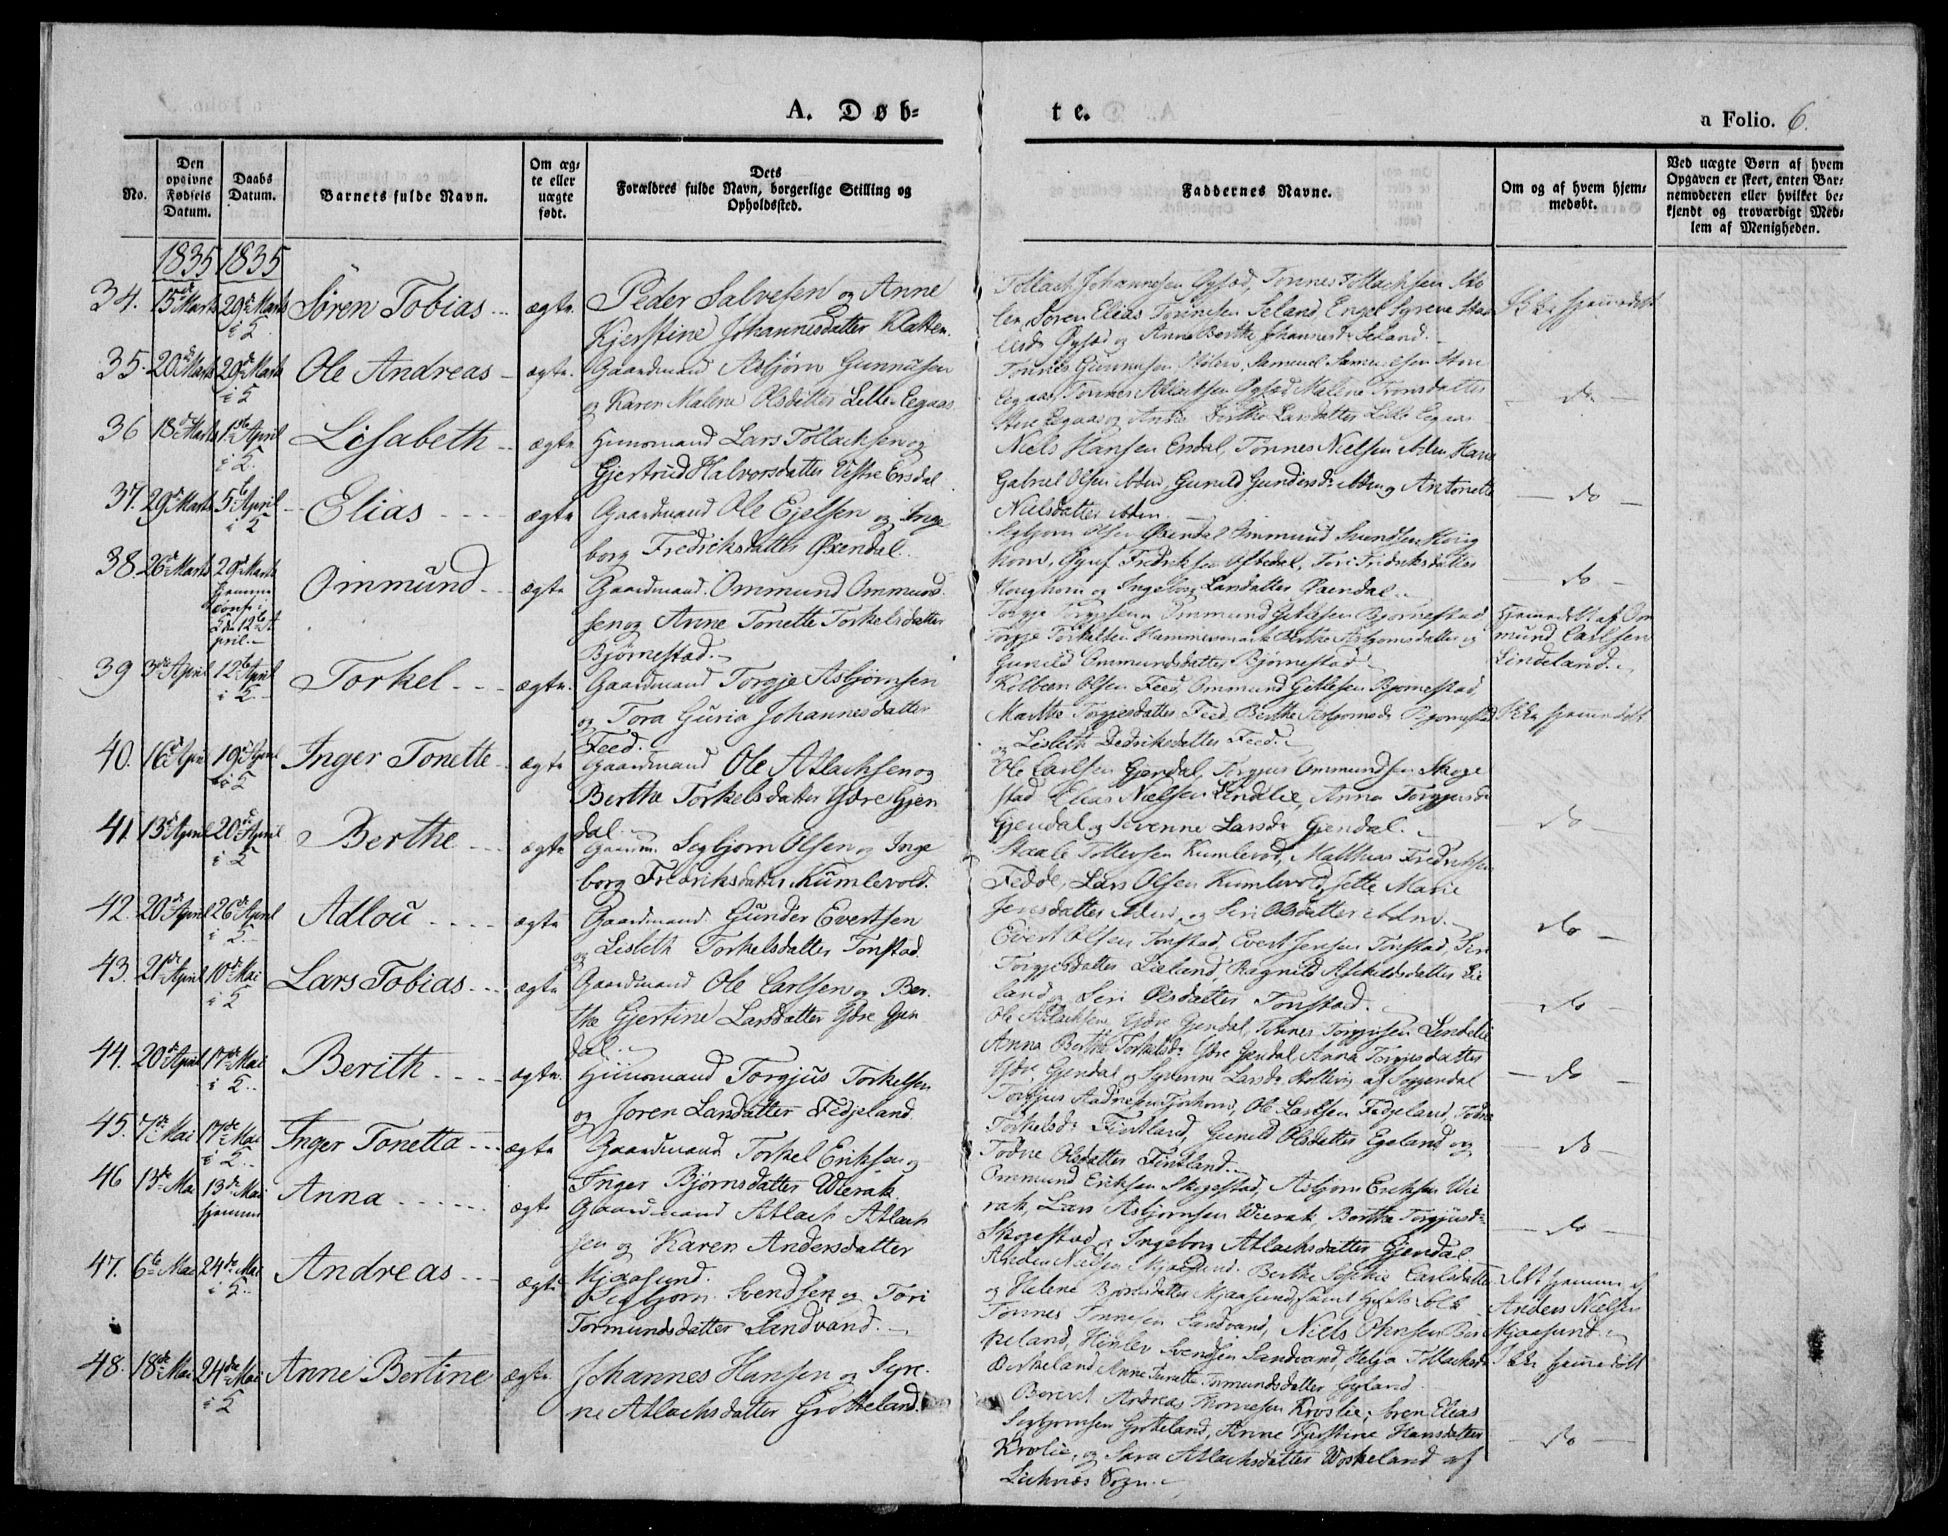 A. Døb=
te.
a Folio. 6.
No.
Den opgivne Fødsels Datum.
Daabs Datum.
Barnets fulde Navn.
Om æg=
te eller
uægte
født.
Dets
Forældres fulde Navn, borgerlige Stilling og
Opholdssted.
Faddernes Navne.
Om og af hvem hjem=
medøbt.
Ved uægte Børn af hvem
Opgaven er skeet, enten Bar=
nemoderen eller hvilket be=
kjendt og troværdigt Med=
lem af Menigheden.
1835 1835
34. 15de Marts 29de Marts i K. Søren Tobias ægte Peder Salvesen og Anne
Kjerstine Johannesdatter Klatten.
Tollach Johannesen Øysæd, Tønnes Tollachsen
Søren Elias Tønnesen Seland, Engel Syrene
Øysæd og Anne Berthe Johannesd. Seland.
Ikke hjemmedøbt
35. 20de Marts 29de Marts i K. Ole Andreas ægte. Gaardmand Asbjørn Gunnusen
og Karen Malene Olsdatter Lille Eegaas
Tønnes Gunnusen Samuel Samuelsen Store
Eegaas, Tønnes Øysæd Malene Tronsdatter
Store Eegaas og Anne Larsdatter Lille Eegaas
do
36 18de Marts 1ste April i K. Lisabeth ægte Huusmand Lars Tollachsen og
Gjertrud Halvorsdatter Vestre Ersdal
Niels Hansen Ersdal, Tønnes Nielsen ibden, Hans
Gabriel Olsen ibden, Gunild Gundersdr ibden og Antonette
Nielsdatter ibden.
do
37. 29de Marts 5te April i K. Elias ægte Gaardmand Ole Ejelsen og Inge
borg Fredriksdatter Øxendal.
Segbjørn Olsen Øxendal Ommund Svendsen
Fredriksen Tori Fredriksdatter
og Ingeborg Larsdatter Øxendal.
do
38. 26de Marts 29de Marts
hjemme
conf. i
K. d. 12te A
pril.
Ommund ægte Gaardmand Ommund Ommund
sen og Anne Tonette Torkelsdatter
Bjørnestad.
Torgje Torgjesen Ommund Gitlesen Bjørnestad
Torgje Torkelsen Hammersmark Berthe Asbjørnsdatter og
Gunild Ommundsdatter Bjørnestad
Hjemmedøbt af Om
mund Carlsen
Lindeland.
39 3die April 12te April i K. Torkel ægte. Gaardmand Torgje Asbjørnsen
og Tora Guria Johannesdatter
Feed.
Kolbeen Olsen Feed, Ommund Gitlesen Bjørnestad,
Marthe Torgjesdatter Feed, Berthe Asbjørnsdr Bjørnestad
og Lisbeth Dedriksdatter Feed.
Ikke hjemmedøbt
40. 16de April 19de April i K Inger Tonette ægte Gaardmand Ole Atlachsen og
Bertha Torkelsdatter Ydre Gjen
dal.
Ole Carlsen Gjendal, Torgjus Ommundsen Skoge
stad Elias Nielsen Lindelie, Anna Torgjusdr
Gjendal og Severine Larsdr Gjendal.
do
41. 13de April 20de April i K Berthe ægte Gaardm. Segbjørn Olsen og Inge
borg Fredriksdatter Kumlevold.
Staale Tollevsen Kumlevold, Matthias Fredriksen
Fedde, Lars Olsen Kumlevold, Jette Marie
Jensdatter ibden, og Siri Olsdatter ibdn.
do
42. 20de April 26de April i K. Adlou ægte Gaardmand Gunder Evertsen
og Lisbeth Torkelsdatter Tonstad.
Evert Olsen Tonstad, Evert Jensen Tonstad, Siri
Torgjesdatter Lieland, Ragnild Lie
land og Siri Olsdatter Tonstad.
do
43. 21de April 10de Mai i K Lars Tobias ægte Gaardmand Ole Carlsen og Ber
tha Gjertine Larsdatter Ydre Gjen
dal.
Ole Atlachsen Ydre Gjendal, Tønnes Torgjusen Lindelie
Anna Berthe Torkelsdr Ydre Gjendal, Anna Torgjusdatter
Ydre Gjendal og Syvenne Larsdr af Soggendal
do
44. 20de April 17de Mai i K. Berith ægte Huusmand Torgjus Torkelsen
og Joren Larsdatter Fidjeland
Torgjus Aadnesen Josdal, Ole Larsen Fidjeland,
Torkelsdr Fintland, Gunild Olsdatter Egeland og
Todne Olsdatter Fintland.
do
45. 7de Mai 17de Mai i K. Inger Tonetta ægte Gaardmand Torkel Eriksen og
Inger Bjørnsdatter Wierak
Ommund Eriksen Skogestad, Asbjørn Eriksen Wie
rak, Lars Asbjørnsen Wierak, Berthe Torgjusdr
Skogestad og Ingeborg Atlachsdatter Gjendal
do
46 13de Mai 13de Mai hjemme Anna ægte Gaardmand Atlach Atlach
sen og Karen Andersdatter
Mjaasund.
Anders Nielsen Mjaasund. Berthe Sophie Carlsdatter
og Helene Bjørnsdatter Mjaasund
Døbt hjemme af
Anders Nielsen
Mjaasund.
47. 6te Mai 24de Mai i K. Andreas ægte Segbjørn Svendsen og Tori
Tormundsdatter Sandvand.
Tønnes Tønnesen Sandvand, Niels Olensen Bir
keland, Svendsen Sandvand, Helga Tollachsdr
Birkeland Anne Tonette Tormundsdatter Gyland.
Ikke hjemmedøbt
48. 18de Mai 24de Mai i K Anne Bertine ægte Johannes Hansen og Syre
ne Atlachsdatter Grøtteland.
Andreas Thomesen Kroslie, Søren Elias
Segbjørnsen Grøtteland, Anne Kjerstine Hansdatter
Kroslie, og Sara Atlachsdatter Woskeland af
Liknæs Sogn.
do